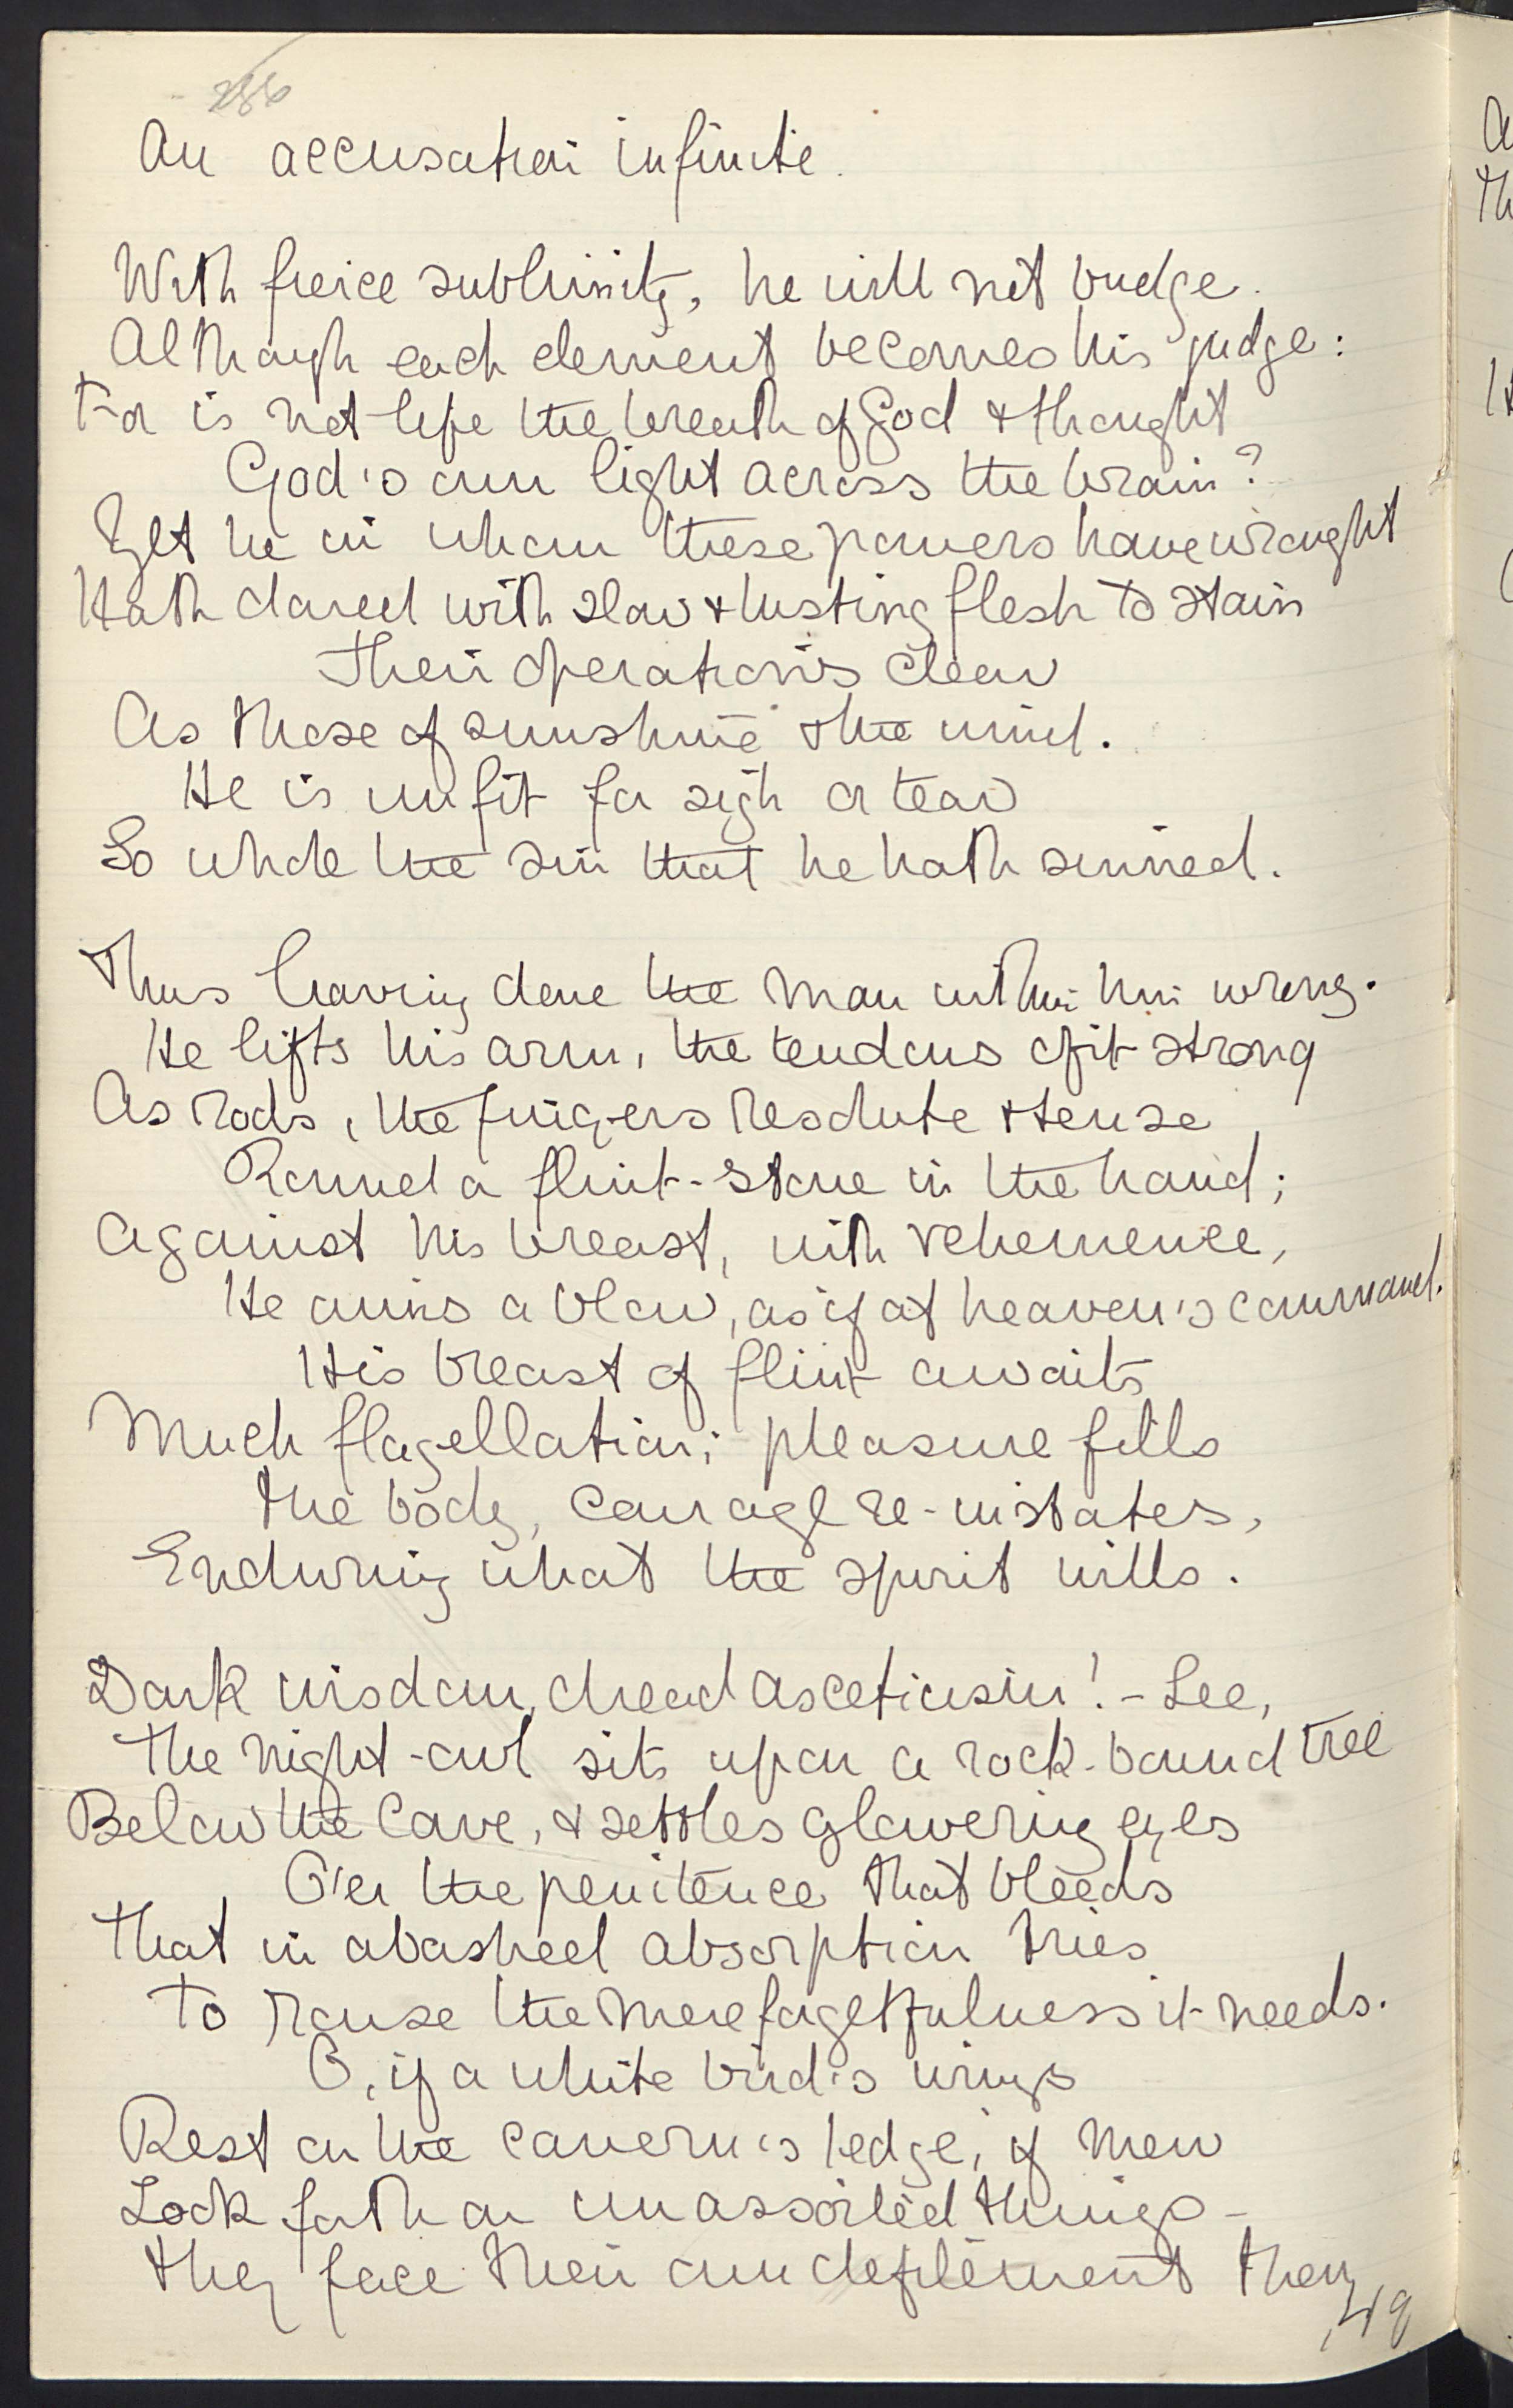 286
An accusation infinite.
With fierce sublimity, he will not budge.
Although each element becomes his judge:
For is not life the breath of God & thought
God's own light across the brain?
Yet he in whom these powers have wrought
Hath dared with slow & lusting flesh to stain
Their operations clear
As those of sunshine & the wind.
He is unfit for sigh or tear
So whole the sin that he hath sinned.
Thus having done the man within him wrong.
He lifts his arm, the tendons of it strong
As rods, the fingers resolute & tense
Round a flint-stone in the hand;
Against his breast, with vehemence,
He aims a blow, as if at heaven's command.
His breast of flint awaits
Much flagellation; pleasure fills
The body, courage re-instates,
Enduring what the spirit wills.
Dark wisdom, dread asceticism! - See,
The night-owl sits upon a rock-bound tree
Below the Cave, & settles glowering eyes
O'er the penitence that bleeds
That in abashed absorption tries
To rouse the mere forgetfulness it needs.
O, if a white bird's wings
Rest on the cavern's ledge, if men
Look forth on unassoiled things -
They face their own defilement then,
49
A
Th